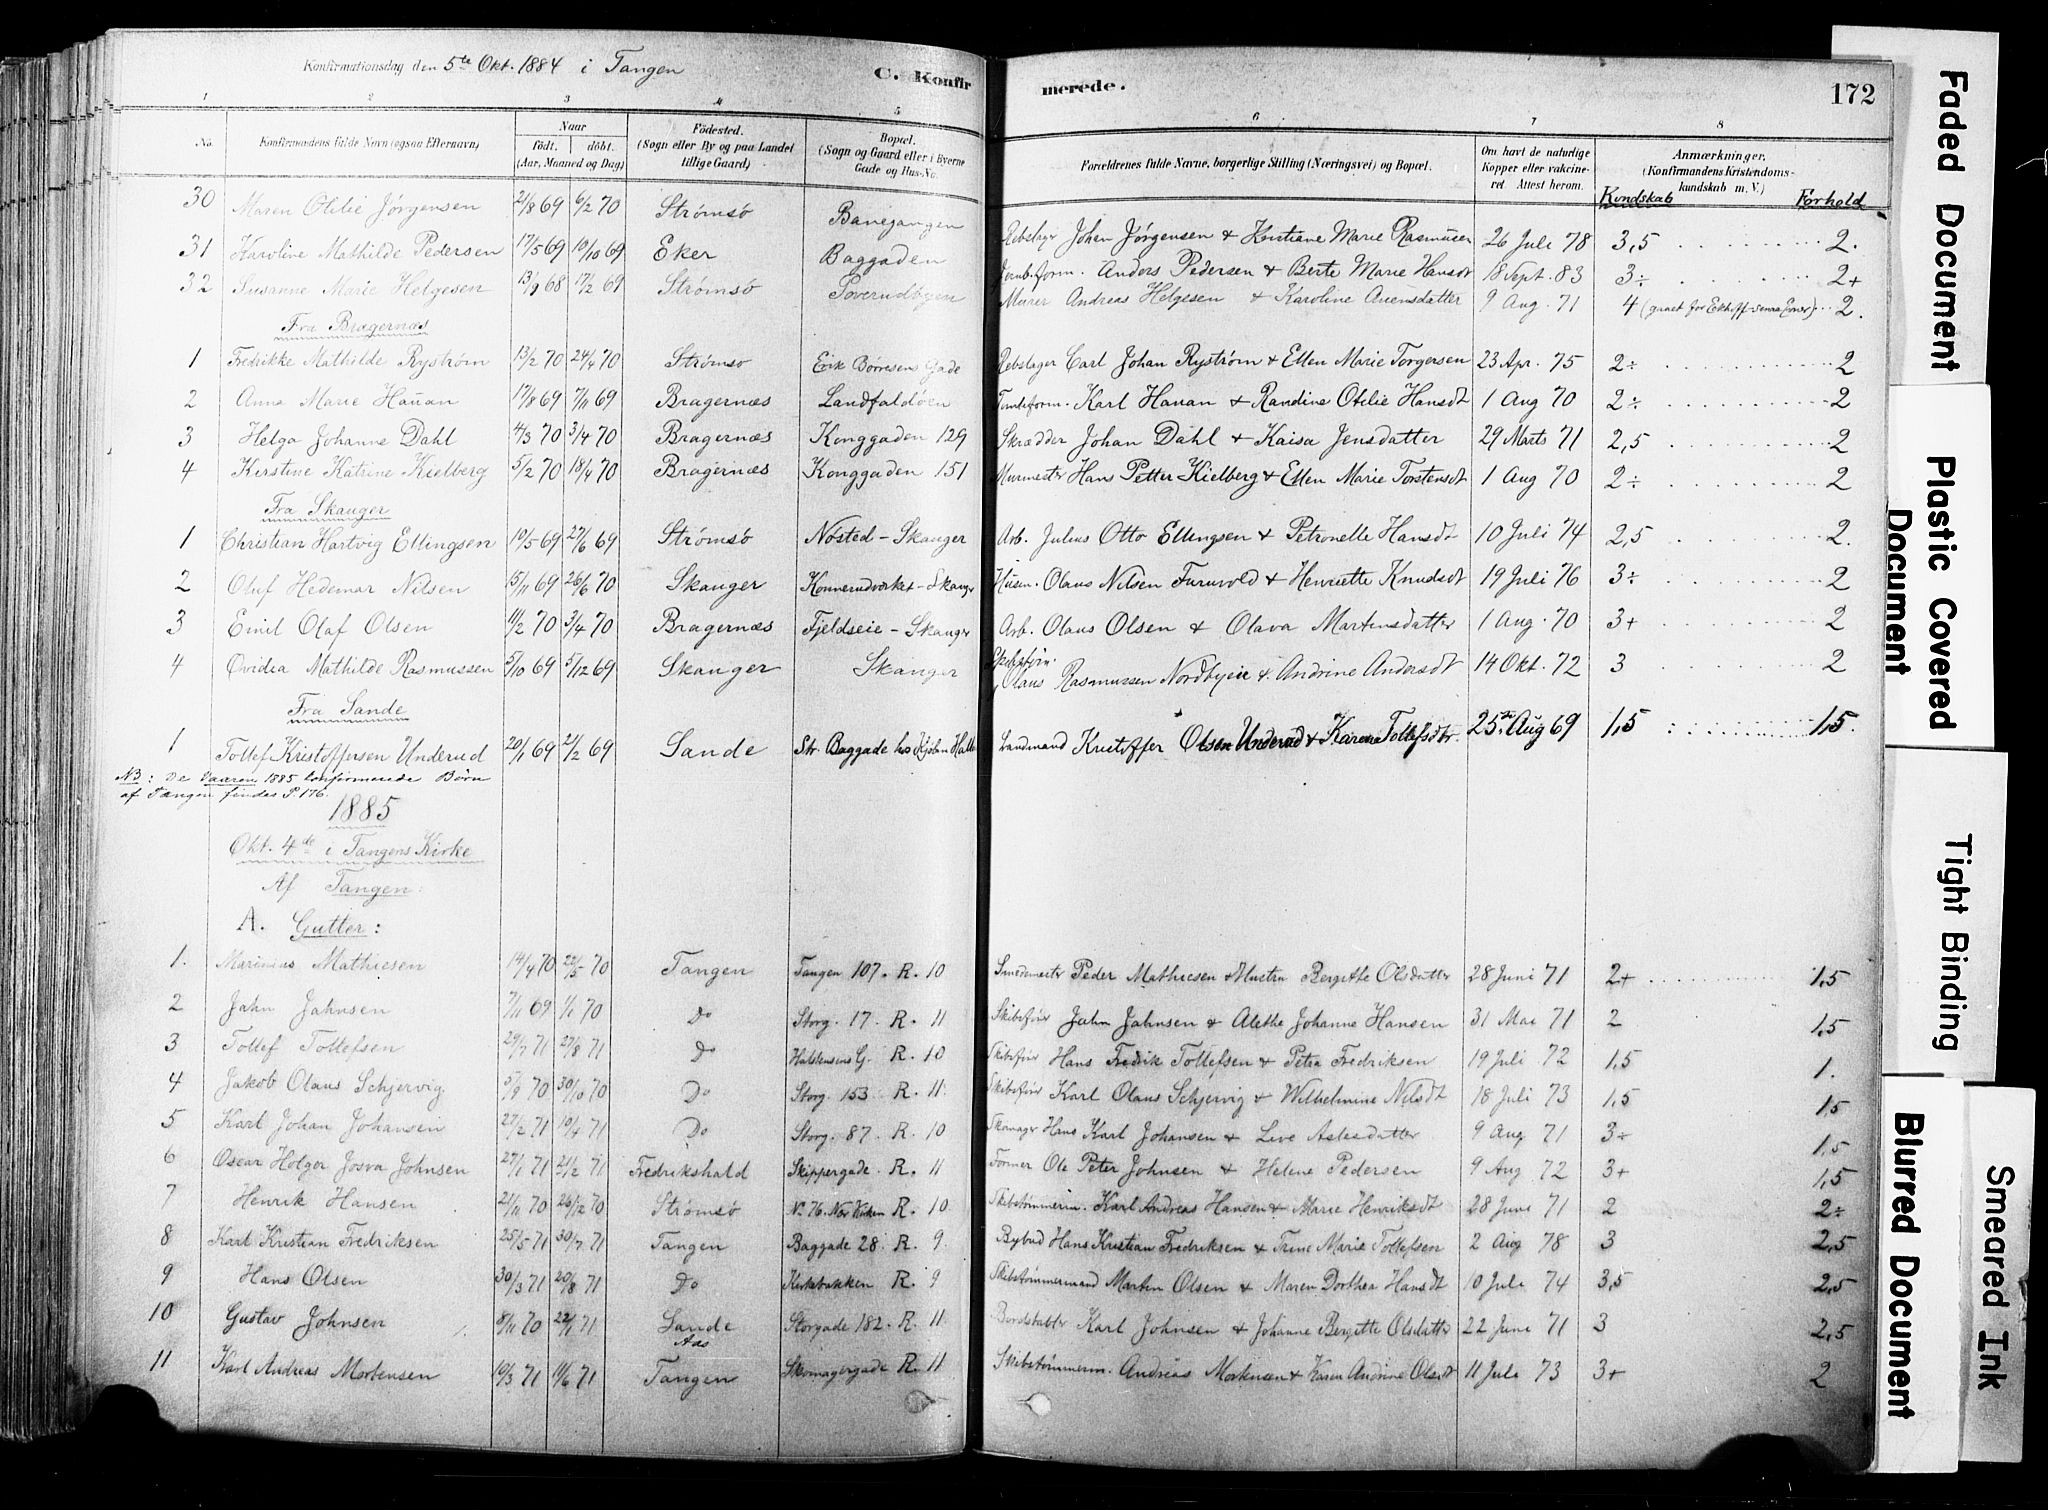 Konfirmationsdag den 5te Okt. 1884 i Tangen
C. Konfirmerede. 172
1 2 3 4 5 6 7 8
No. Konfirmandens fulde Navn (ogsaa Efternavn) Naar født. døbt. (Aar, Maaned og Dag) Fødested. (Sogn eller By og paa Landet tillige Gaard) Bopæl. (Sogn og Gaard eller i Byerne Gade og Hus-No. Forældrenes fulde Navne, borgerlige Stilling (Næringsvei) og Bopæl. Om havt de naturlige Kopper eller vaccineret. Attest herom. Anmærkninger. (Konfirmandens Kristendomskundskab m. V.) Kundskab Forhold
30 Maren Otilie Jørgensen 21/8 69 6/2 70 Strømsø Banegangen Rebslager Johan Jørgensen & Kristiane Marie Rasmusen 26 Juli 78 3,5 2.
31 Karoline Mathilde Pedersen 17/5 69 10/10 69 Eker Baggaden Anders Pedersen & Berte Marie Hansdt 18 Sept. 83 3÷ 2+
32 Susanne Marie Helgesen 13/9 68 17/2 69 Strømsø Murer Andreas Helgesen & Karoline 9 Aug. 71 4 2.
Fra Bragernæs
1 Fredrikke Mathilde Rystrøm 13/2 70 24/4 70 Strømsø Erik Børresens Gade Rebslager Carl Johan Rystrøm & Ellen Marie Torgersen 23 Apr. 75 2÷ 2
2 Anne Marie Hauan 17/8 69 7/11 69 Bragernæs Landfaldøen Tomteform. Karl Hauan & Randine Otilie Hansdt 1 Aug 70 2÷ 2
3 Helga Johanne Dahl 4/3 70 3/4 70 Bragernæs Konggaden 129 Skrædder Johan Dahl & Kaisa Jensdatter 29 Marts 71 2,5 2
4 Kirstine Katrine Kielberg 5/2 70 18/4 70 Bragernæs Konggaden 151 Murmester Hans Petter Kielberg & Ellen Marie Torstensdt 1 Aug 70 2÷ 2
Fra Skauger
1 Christian Hartvig Ellingsen 10/5 69 27/6 69 Strømsø Nøsted - Skauger Arb. Julius Otto Ellingsen & Petronelle Hansdt 10 Juli 74 2,5 2.
2 Oluf Hedemar Nilsen 15/11 69 26/6 70 Skauger Konnerudverket - Skauger Husm. Olaus Nilsen Furuvold & Henriette Knudsdt 19 Juli 76 3÷ 2
3 Emil Olaf Olsen 11/2 70 3/4 70 Bragernæs Fjeldseie - Skauger Arb. Olaus Olsen & Olava Martinsdatter 1 Aug. 70 3+ 2
4 Ovidia Mathilde Rasmussen 5/10 69 5/12 69 Skauger Skauger Olaus Rasmussen Nordbyeie & Andrine Andersdt 14 Okt. 72 3 2
Fra Sande
1 Tollef Kristoffersen Underud 20/1 69 21/2 69 Sande Str. Baggade hos Landmand Kristoffer Olsen Underud & Karen Tollefsdtr. 25 Aug 69 1,5 1,5
NB: De Vaaren 1885 confirmerede Børn
af Tangen findes P. 176.
1885
Okt. 4de i Tangens Kirke
Af Tangen:
A. Gutter:
1. Marinius Mathiesen 14/4 70 22/5 70 Tangen Tangen 107. R. 10 Smedemester Peder Mathiesen & Hustru Bergitte Olsdatter 28 Juni 71 2+ 1,5
2 Jahn Jahnsen 7/11 69 1/1 70 Do Storg. 17. R. 11 Skibsfører Jahn Jahnsen & Alethe Johanne Hansen 31 Mai 71 2 1,5
3 Tollef Tollefsen 29/7 71 27/8 71 Do R. 10 Skibsfører Hans Fredik Tollefsen & Petra Fredriksen 19 Juli 72 1,5 1.
4 Jakob Olaus Schjervig 5/9 70 30/10 70 Do Storg. 153 R. 11. Skibsfører Karl Olaus Schjervig & Wilhelmine Nilsdt 18 Juli 73 1,5 1,5
5 Karl Johan Johansen 27/2 71 10/4 71 Do Storg. 87. R. 10 Skomager Hans Karl Johansen & Live Aslesdatter 9 Aug 71 3÷ 1,5
6 Oscar Holger Josva Johnsen 27/1 71 21/2 71 Fredrikshald Skippergade. R. 11 Former Ole Peter Johnsen & Helene Pedersen 9 Aug 72 3+ 1,5
7 Henrik Hansen 21/11 70 26/12 70 Strømsø No 76. R. 10. Skibstømmerm. Karl Andreas Hansen & Marie Henriksdt 28 Juni 71 2 2÷
8 Karl Kristian Fredriksen 25/5 71 30/7 71 Tangen Baggade 28. R. 9. Bybud Hans Kristian Fredriksen & Trine Marie Tollefsen 2 Aug 78 3 2,5
9 Hans Olsen 30/3 71 20/8 71 Do Kirkebakken R. 9 Skibstømmermand Morten Olsen & Maren Dorthea Hansdt 10 Juli 74 3,5 2,5
10 Gustav Johnsen 8/11 70 22/1 71 Sande Aas Storgade 182. R. 11. Karl Johnsen & Johanne Bergitte Olsdatter 22 Juni 71 3 2,5
11 Karl Andreas Mortensen 10/3 71 11/6 71 Tangen Skomagergade R. 11 Skibstømmerm. Andreas Mortensen & Karen Andrine Olsdt 11 Juli 73 3+ 2
Faded Document
Plastic Covered Document
Tight Binding
Blurred Document
Smeared Ink